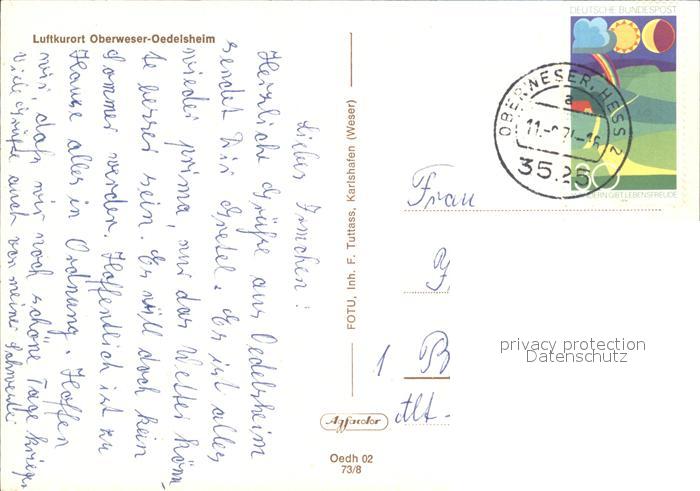 Luftkurort Oberweser-Oedelsheim
Liebes Irmchen!
Herzliche Grüße aus Oedelsheim
sendet Dir Gretel. Es ist alles
wieder prima, nur das Wetter könn
te besser sein. Es will doch kein
Sommer werden. Hoffentlich ist zu
Hause alles in Ordnung. Hoffen
wir, daß wir noch schöne Tage kriegen
Viele Grüße auch von meiner Schwester
FOTU, Inh. F. Tuttass, Karlshafen (Weser)
Agfacolor
Oedh 02
73/8
DEUTSCHE BUNDESPOST
30
WANDERN GIBT LEBENSFREUDE
OBERWESER, HESS 2
a
3525
Frau
1 B
Alt-
privacy protection
Datenschutz